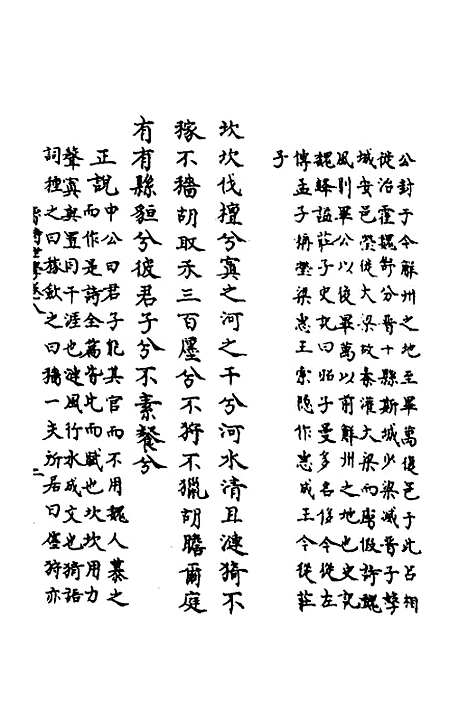 公封于今解州之地至畢萬復邑于此占翊
從治霍魏舒分晉十縣斯城少梁滅晉子罃
城安邑罃徙大梁故秦灌大梁而虜假詩魏
風則畢公以後畢萬以前解州之地也史記
魏絳諡莊子史記曰昭子曼多名侈今從左
傳孟子稱罃梁惠王索隱作惠成王今從莊
子
坎坎伐檀兮寘之河之干兮河水清且漣猗不
稼不穡胡取禾三百廛兮不狩不獵胡瞻爾庭
有有縣貆兮彼君子兮不素餐兮
正說申公曰君子化其官而不用魏人慕之
而作是詩全篇皆比而賦也坎坎用力
聲寘與置同干涯也漣風行水成文也猗語
詞種之曰稼斂之曰穡一夫所居曰廛狩亦